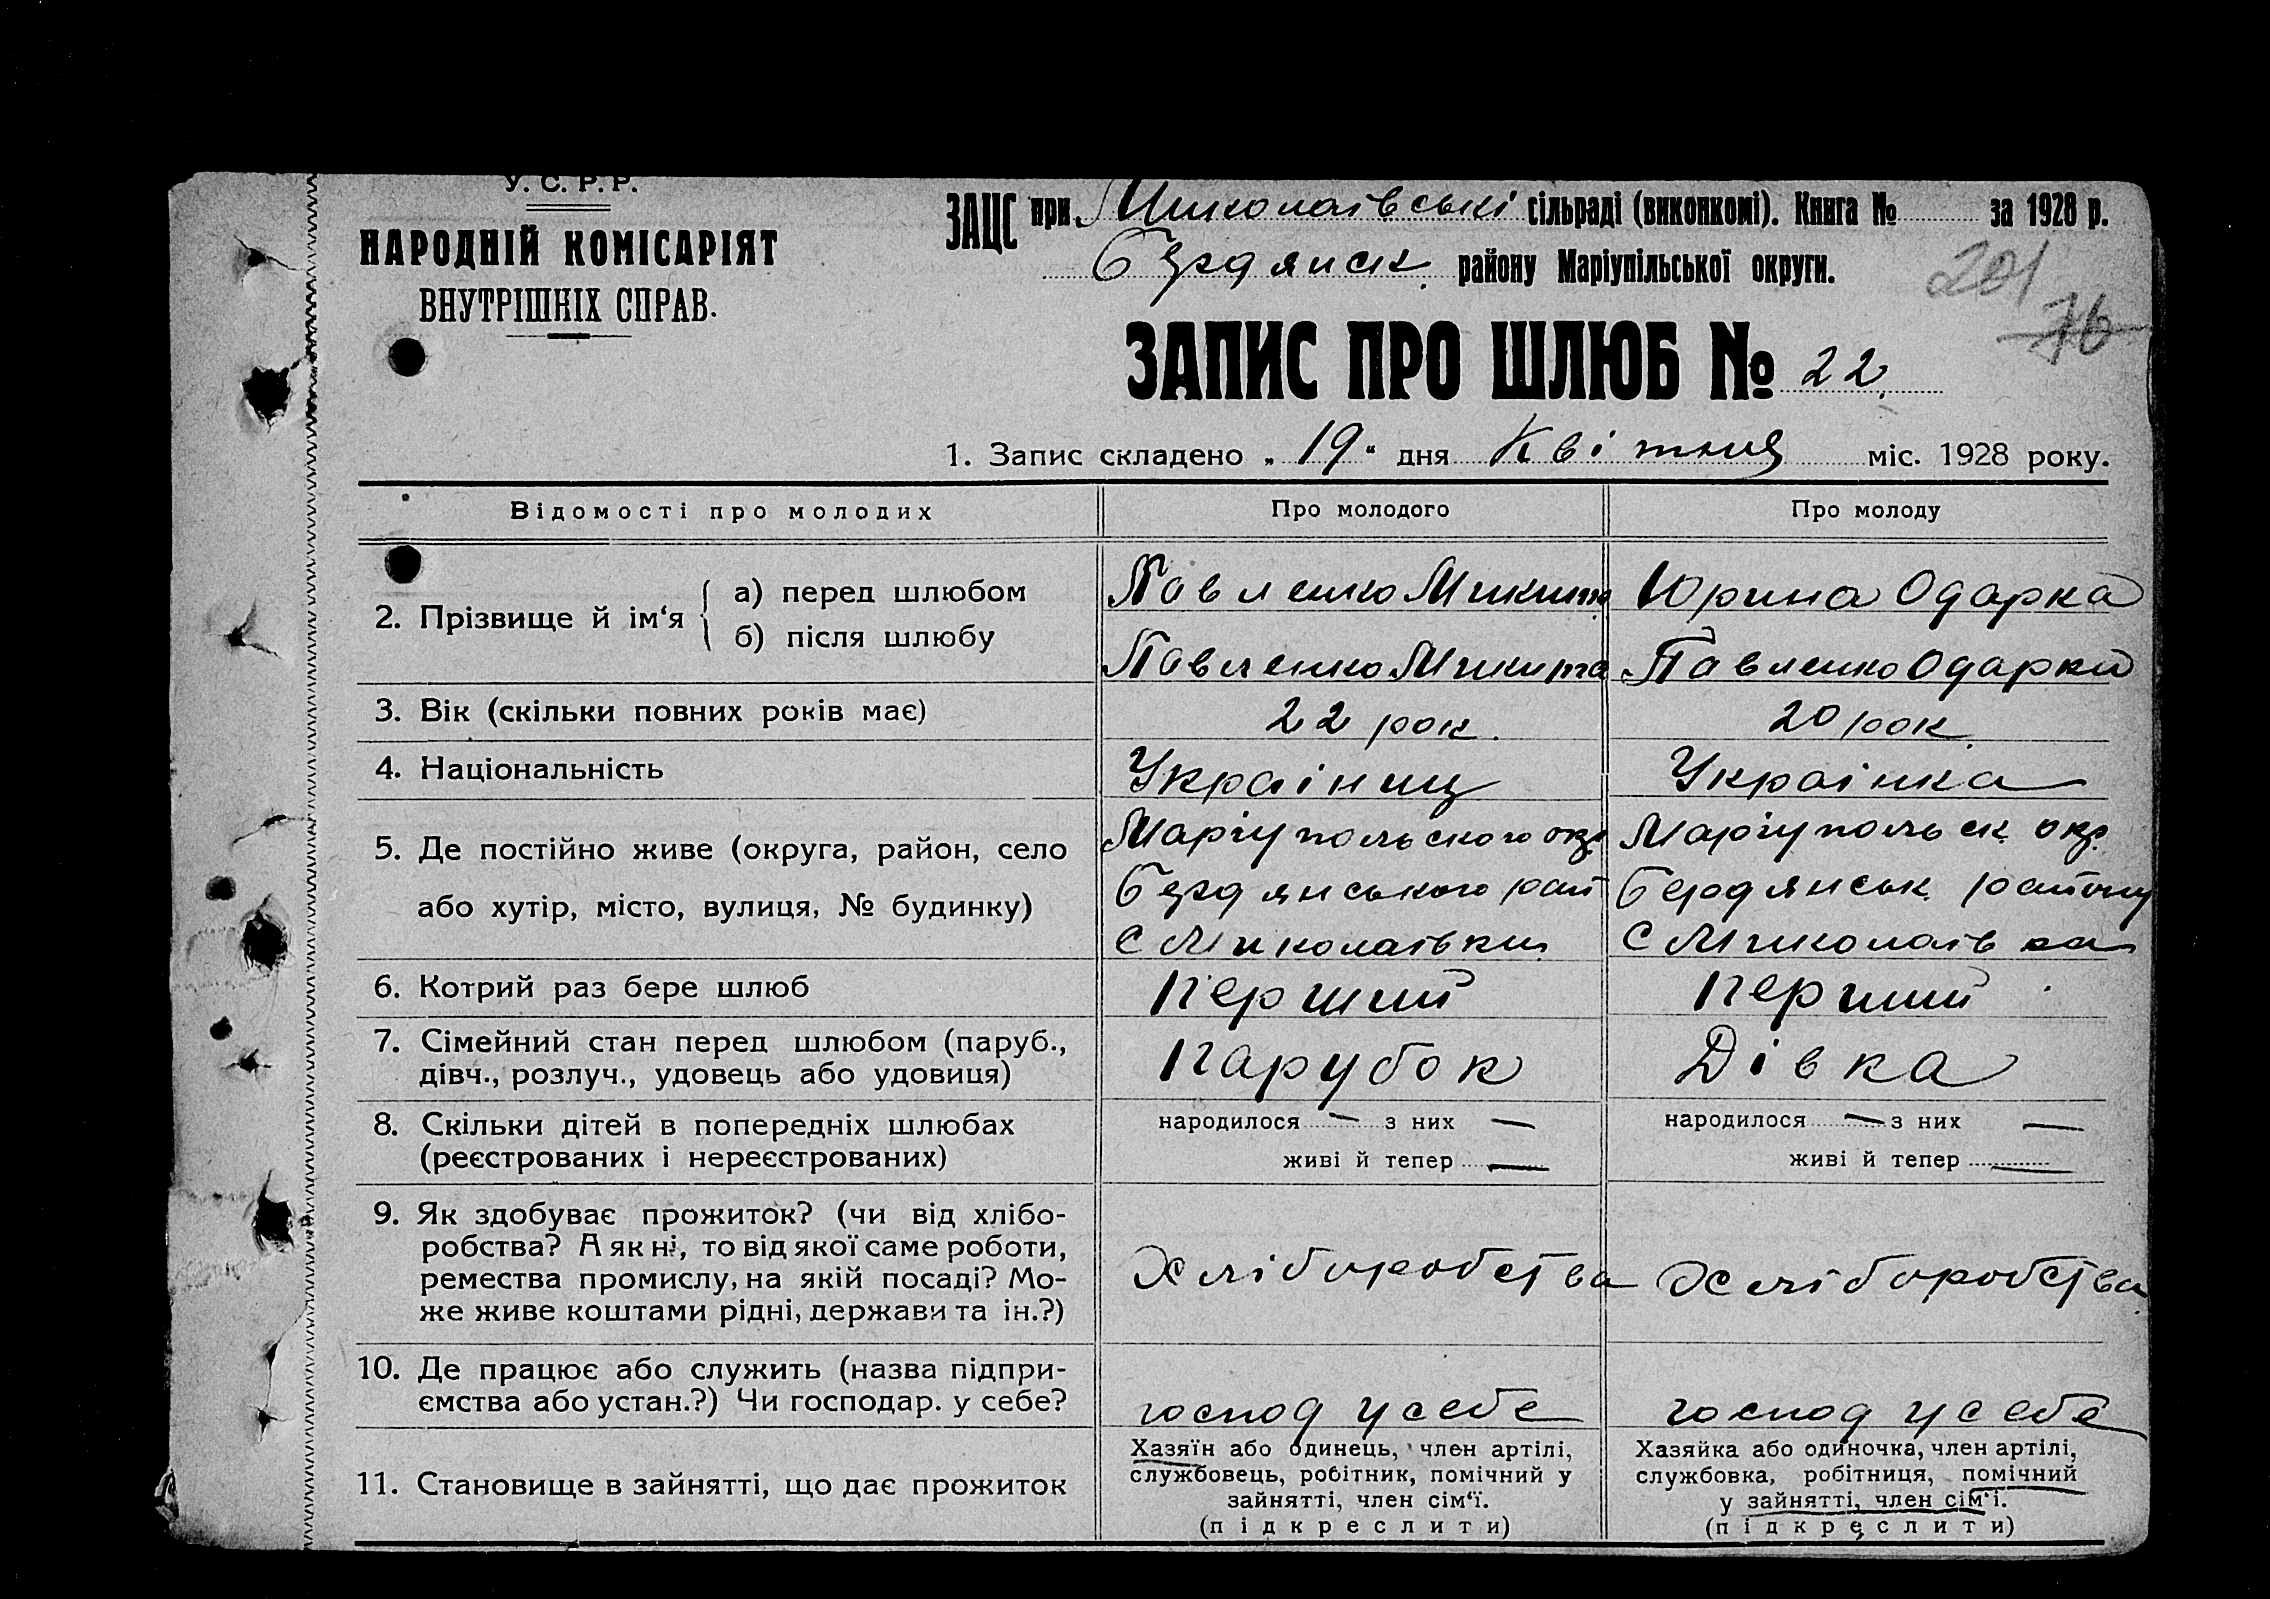 У. С. Р. Р.
НАРОДНІЙ КОМІСАРІЯТ
ВНУТРІШНІХ СПРАВ.
ЗАЦС при Миколаівські сільраді (виконкомі). Книга № за 1928 р.
Бердянськ. району Маріупільської округи.
201
76
ЗАПИС ПРО ШЛЮБ № 22
1. Запис складено „ 19 “ дня Квітния міс. 1928 року.
Відомості про молодих
Про молодого
Про молоду
2. Прізвище й ім‘я
а) перед шлюбом
Павленко Микита
Юрина Одарка
б) після шлюбу
Павленко Микита
Павленко Одарка
3. Вік (скільки повних років має)
22 рок.
20 рок.
4. Національність
Украіниц
Украінка
5. Де постійно живе (округа, район, село
або хутір, місто, вулиця, № будинку)
Маріупольского окр.
Бердянського рай
с Миколаівки
Маріупольск. окр.
Бердянськ. району
с Миколаівка
6. Котрий раз бере шлюб
перший
перший
7. Сімейний стан перед шлюбом (паруб.,
дівч., розлуч., удовець або удовиця)
парубок
Дівка
8. Скільки дітей в попередніх шлюбах
(реєстрованих і нереєстрованих)
народилося — з них —
живі й тепер —
народилося — з них —
живі й тепер —
9. Як здобуває прожиток? (чи від хлібо-
робства? А як ні, то від якої саме роботи,
ремества промислу, на якій посаді? Мо-
же живе коштами рідні, держави та ін.?)
Хліборобства
Хліборобства
10. Де працює або служить (назва підпри-
ємства або устан.?) Чи господар. у себе?
господ у себе
господ у себе
11. Становище в зайнятті, що дає прожиток
Хазяїн або одинець, член артілі,
службовець, робітник, помічний у
зайнятті, член сім‘ї.
(підкреслити)
Хазяйка або одиночка, член артілі,
службовка, робітниця, помічний
у зайнятті, член сім‘і.
(підкреслити)